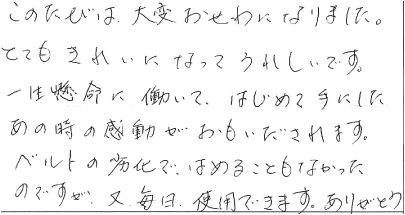 このたびは、大変おせわになりました。
とてもきれいになってうれしいです。
一生懸命に働いて、はじめて手にした
あの時の感動がおもいだされます。
ベルトの劣化で、はめることもなかった
のですが、又、毎日、使用できます。ありがとう